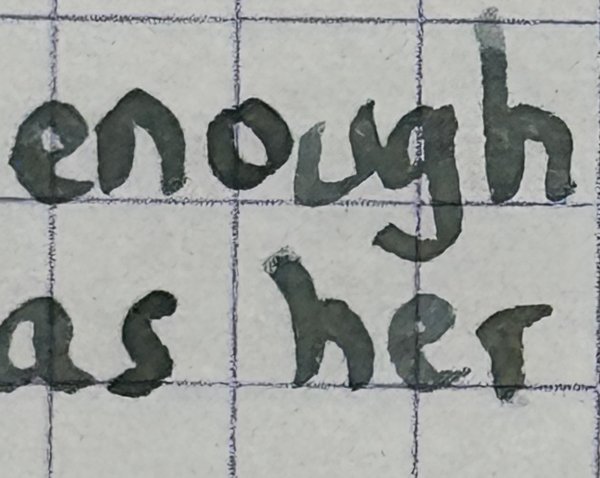 enough
as her